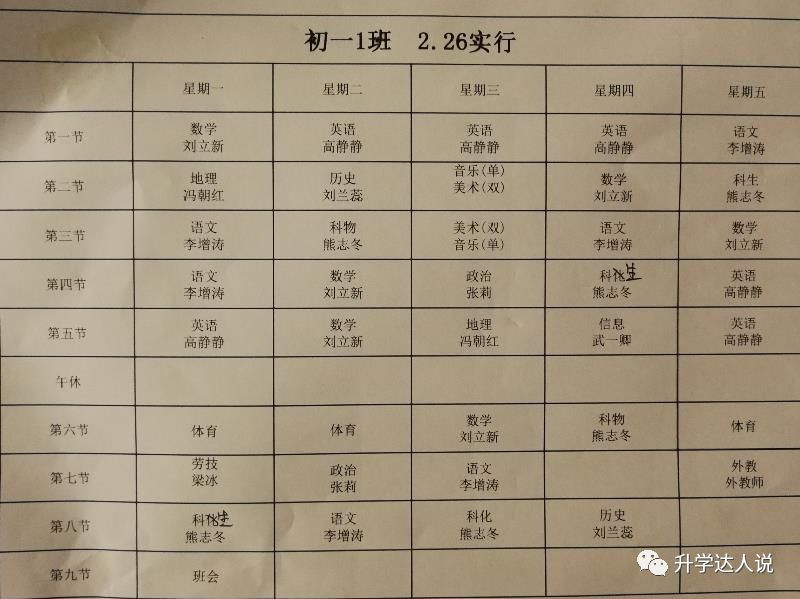 初一1班 2.26实行
星期一 星期二 星期三 星期四 星期五
第一节 数学 英语 英语 英语 语文
刘立新 高静静 高静静 高静静 李增涛
第二节 地理 历史 音乐(单) 数学 科生
冯朝红 刘兰蕊 美术(双) 刘立新 熊志冬
第三节 语文 科物 美术(双) 语文 数学
李增涛 熊志冬 音乐(单) 李增涛 刘立新
第四节 语文 数学 政治 科化生 英语
李增涛 刘立新 张莉 熊志冬 高静静
第五节 英语 数学 地理 信息 英语
高静静 刘立新 冯朝红 武一卿 高静静
午休
第六节 体育 体育 数学 科物 体育
刘立新 熊志冬
第七节 劳技 政治 语文 外教
梁冰 张莉 李增涛 外教师
第八节 科化生 语文 科化 历史
熊志冬 李增涛 熊志冬 刘兰蕊
第九节 班会
升学达人说